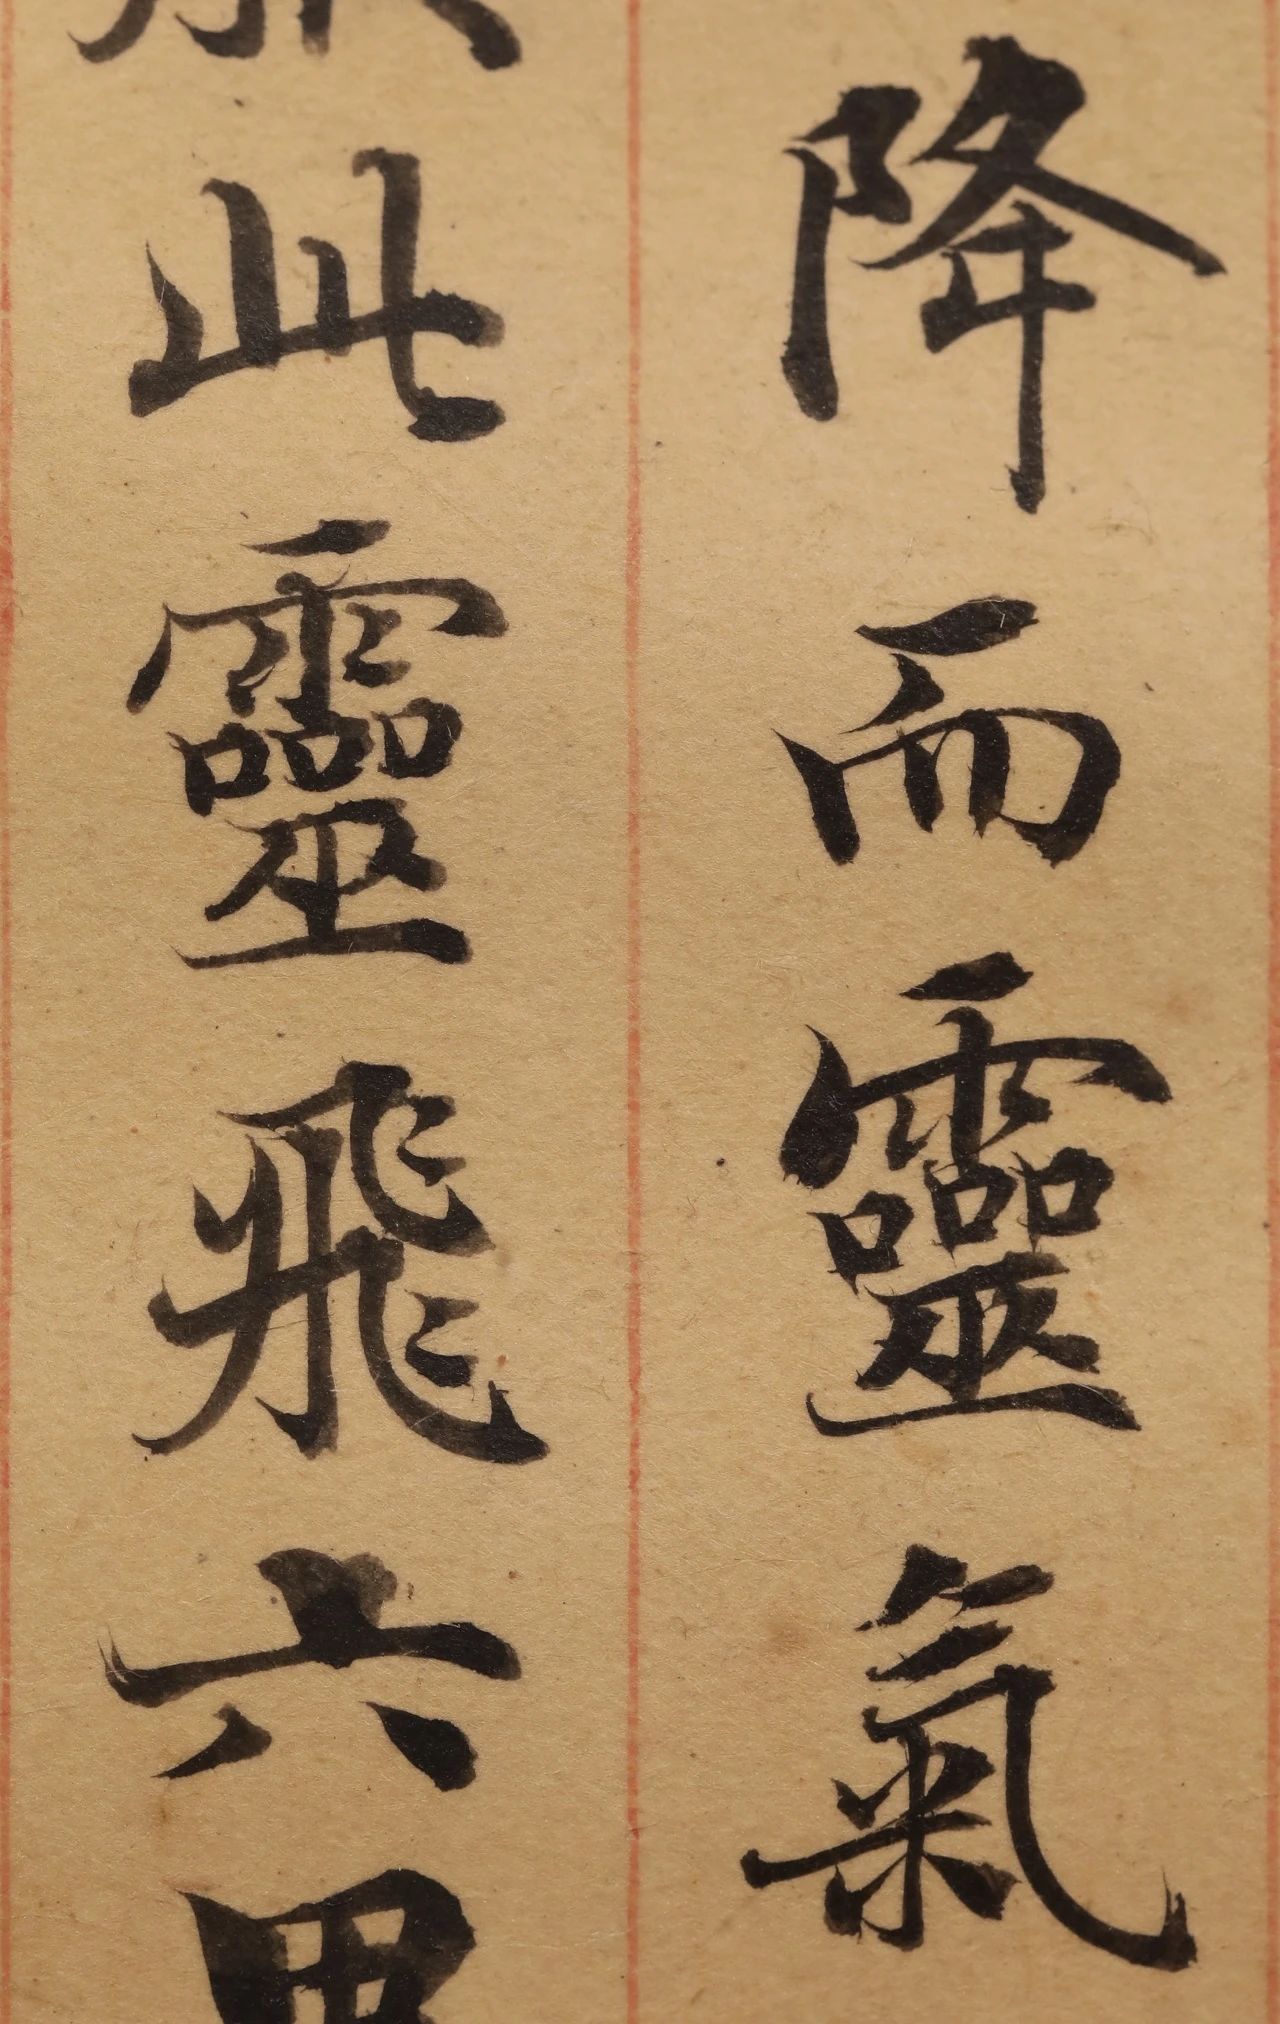 降而靈氣
此靈飛六